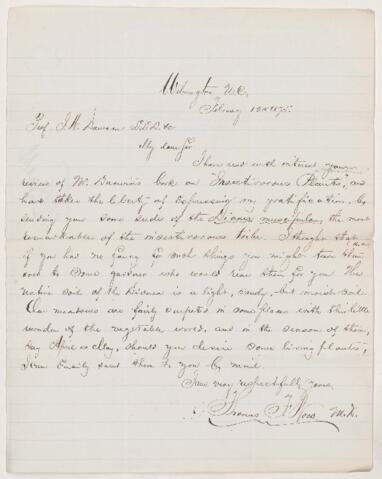 Wilmington N.C.
February 12th 1875.
Prof. J. W. Dawson L.L.D. &c
My dear Sir
I have read with interest your
review of Mr Darwin's book on "Insectivorous Plants", and
have taken the liberty of expressing my gratification, by
sending you some seeds of the Dionea muscipula, the most
remarkable of the insectivorous tribe. I thought that
if you had no fancy for such things you might turn them
over to some gardener who would rear them for you. The
native soil of the Dionea is a light, sandy, but moist soil.
Our meadows are fairly carpeted in some places with this little
wonder of the vegetable world, and in the season of them,
say April or May, should you desire some living plants,
I can easily send them to you by mail.
I am very respectfully yours,
Thomas F. Wood M.D.